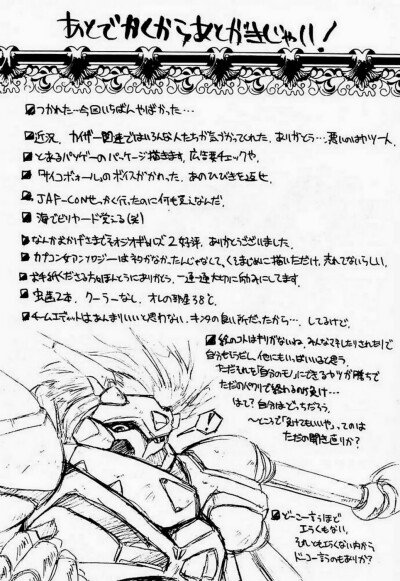 あとでかくからあとがきじゃい！
つかれた…今回いちばんやばかった…
近況、カイザー関連ではいろんな人たちが気づかってくれた、ありがとう…悪いのはヤツ一人
とあるパソゲーのパッケージ描きます、広告要チェックや、
「サイコボォール」のボイスがかわった、あのひびきを返せ、
JAF-CONせっかく行ったのに何も買えなんだ、
海でビリヤード覚える(笑)
なんかおかげさまで　2好評、ありがとうございました、
カプコン女アンソロジーはネタがなかったんじゃなくて、くそまじめに描いただけ、売れてないらしい、
お手紙くださる方々ほんとうにありがとう、一通一通大切に励みにしてます、
虫歯2本、クーラーなし、オレの部屋38℃、
チームエディットはあんまりいいと思わない、キングの良い所だったから…、してるけど、
絵のコトはキリがないね、みんなマネしたりされたりで
自分もそうだし、他にもいっぱいいると思う、
ただそれを「自分のモノ」にできるヤツが勝ちで
ただのパクリで終わるのが負け…
はて？自分はどっちだろう、
〜ところで「負けてもいいや」ってのは
ただの開き直りか？
どーこーするほど
エラくもない、
それともエラくない内から
ドーコーするのもありか？